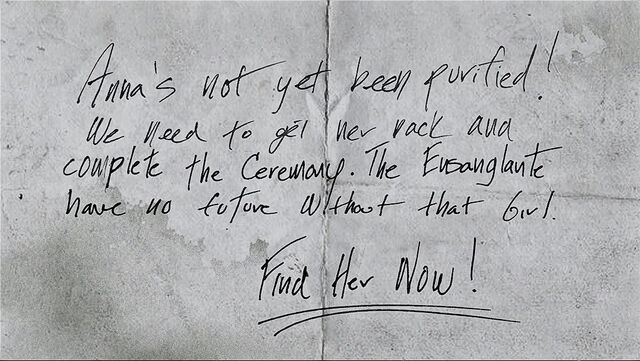 Anna's not yet been purified!
We need to get her back and
complete the Ceremony. The Ensanglante
have no future without that Girl.
Find Her Now!